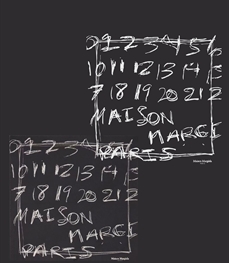 0 1 2 3 4 5 6
10 11 12 13 14 15
7 18 19 20 21 2
MAISON
MARGI
PARIS
0 1 2 3 4
10 11 12 13 14 15
7 18 19 20 21 2
MAISON
MARGI
PARIS